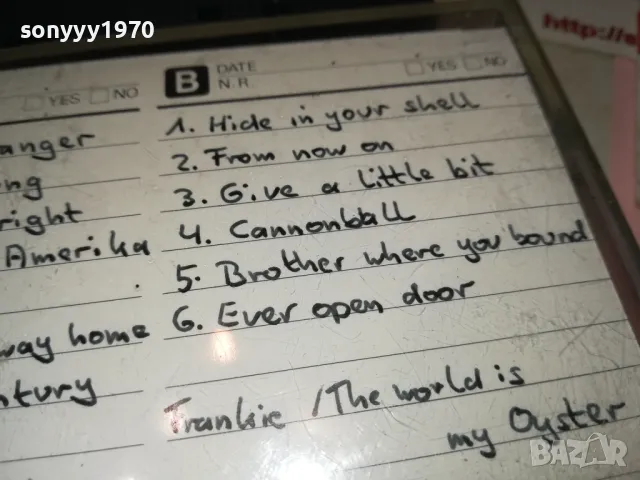 sonyyy1970
http://
YES NO
B DATE YES NO
N.R.
anger
ng
right
Amerika
way home
ntury
1. Hide in your shell
2. From now on
3. Give a little bit
4. Cannonball
5. Brother where you bound
6. Ever open door
Frankie / The world is
my Oyster
BAZAR
bg